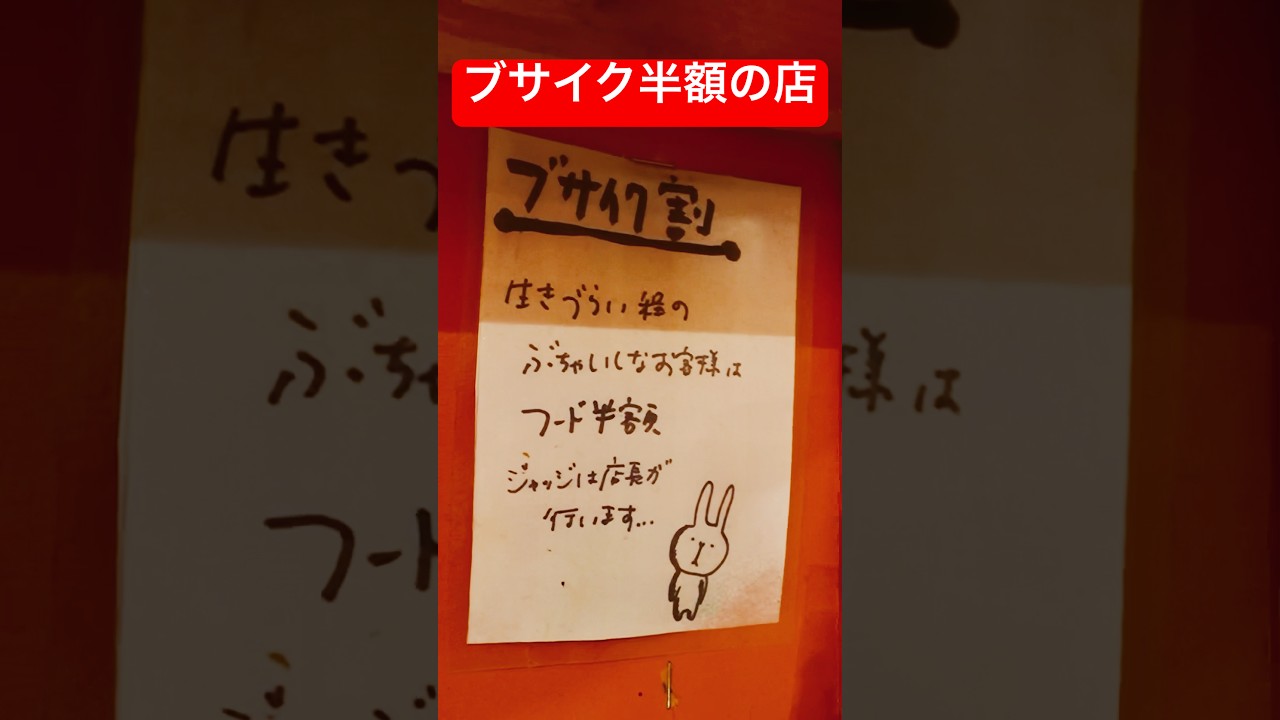 ブサイク半額の店
ブサイク割
生きづらい程の
ぶちゃいくなお客様は
フード半額
ジャッジは店長が
行います...